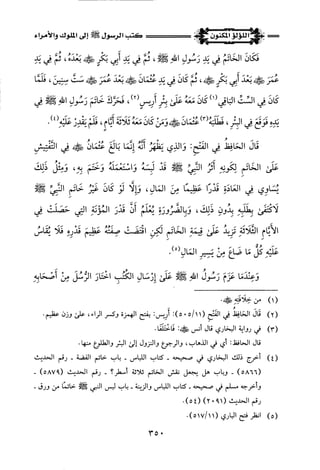 اللؤلؤ المكنون
كتب الرسول ﷺ إلى الملوك والأمراء
فَكَانَ الخَاتَمُ فِي يَدِ رَسُولِ اللهِ ﷺ، ثُمَّ فِي يَدِ أَبِي بَكْرٍ ﷺ بَعْدَهُ، ثُمَّ فِي يَدِ
عُمَرَ ﷺ بَعْدَ أَبِي بَكْرٍ ﷺ، ثُمَّ كَانَ فِي يَدِ عُثْمَانَ ﷺ بَعْدَ عُمَرَ ﷺ سِتَّ سِنِينَ، فَلَمَّا
كَانَ فِي السِّتِّ البَاقِي(١) كَانَ مَعَهُ عَلَى بِئْرِ أَرِيسٍ(٢)، فَحَرَّكَ خَاتَمَ رَسُولِ اللهِ ﷺ فِي
يَدِهِ فَوَقَعَ فِي البِئْرِ، فَطَلَبَهُ(٣) عُثْمَانُ ﷺ وَمَنْ كَانَ مَعَهُ ثَلَاثَةَ أَيَّامٍ، فَلَمْ يَقْدِرْ عَلَيْهِ(٤).
قَالَ الحَافِظُ فِي الفَتْحِ: وَالذِي يَظْهَرُ أَنَّهُ إِنَّمَا بَالَغَ عُثْمَانُ ﷺ فِي التَّفْتِيشِ
عَلَى الخَاتَمِ لِكَوْنِهِ أَثَرَ النَّبِيِّ ﷺ قَدْ لَبِسَهُ وَاسْتَعْمَلَهُ وَخَتَمَ بِهِ، وَمِثْلُ ذَلِكَ
يُسَاوِي فِي العَادَةِ قَدْرًا عَظِيمًا مِنَ المَالِ، وَإِلَّا لَوْ كَانَ غَيْرَ خَاتَمِ النَّبِيِّ ﷺ
لَاكْتَفَى بِطَلَبِهِ بِدُونِ ذَلِكَ، وَبِالضَّرُورَةِ يُعْلَمُ أَنَّ قَدْرَ المُؤْنَةِ التِي حَصَلَتْ فِي
الأَيَّامِ الثَّلَاثَةِ تَزِيدُ عَلَى قِيمَةِ الخَاتَمِ لَكِنِ اقْتَضَتْ صِفَتُهُ عَظِيمَ قَدْرِهِ فَلَا يُقَاسُ
عَلَيْهِ كُلُّ مَا ضَاعَ مِنْ يَسِيرِ المَالِ(٥).
وَعِنْدَمَا عَزَمَ رَسُولُ اللهِ ﷺ عَلَى إِرْسَالِ الكُتُبِ اخْتَارَ الرُّسُلَ مِنْ أَصْحَابِهِ
(١) من خِلَافَتِهِ ﷺ.
(٢) قَالَ الحَافِظُ فِي الفَتْحِ (٥٠٥/١١): أَرِيس: بفتح الهمزة وكسر الراء، على وزن عظيم.
(٣) في رواية البخاري قال أنس ﷺ: فَاخْتَلَفْنَا.
قال الحافظ: أي في الذهاب، والرجوع والنزول إلى البئر والطلوع منها.
(٤) أخرج ذلك البخاري في صحيحه - كتاب اللباس - باب خاتم الفضة - رقم الحديث
(٥٨٦٦) - وباب هل يجعل نقش الخاتم ثلاثة أسطر؟ - رقم الحديث (٥٨٧٩) -
وأخرجه مسلم في صحيحه - كتاب اللباس والزينة - باب لبس النبي ﷺ خاتمًا من ورق -
رقم الحديث (٢٠٩١) (٥٤).
(٥) انظر فتح الباري (٥١٧/١١).
٣٥٠